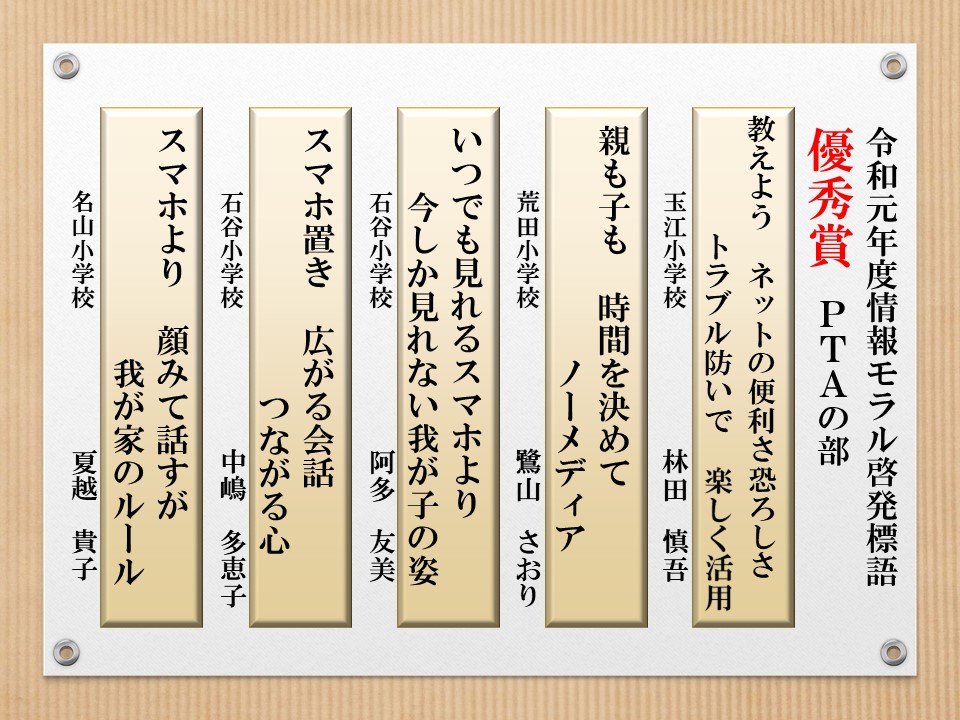 令和元年度情報モラル啓発標語
優秀賞　ＰＴＡの部
教えよう　ネットの便利さ恐ろしさ
トラブル防いで　楽しく活用
玉江小学校　林田　慎吾
親も子も　時間を決めて
ノーメディア
荒田小学校　鷺山　さおり
いつでも見れるスマホより
今しか見れない我が子の姿
石谷小学校　阿多　友美
スマホ置き　広がる会話
つながる心
石谷小学校　中嶋　多恵子
スマホより　顔みて話すが
我が家のルール
名山小学校　夏越　貴子